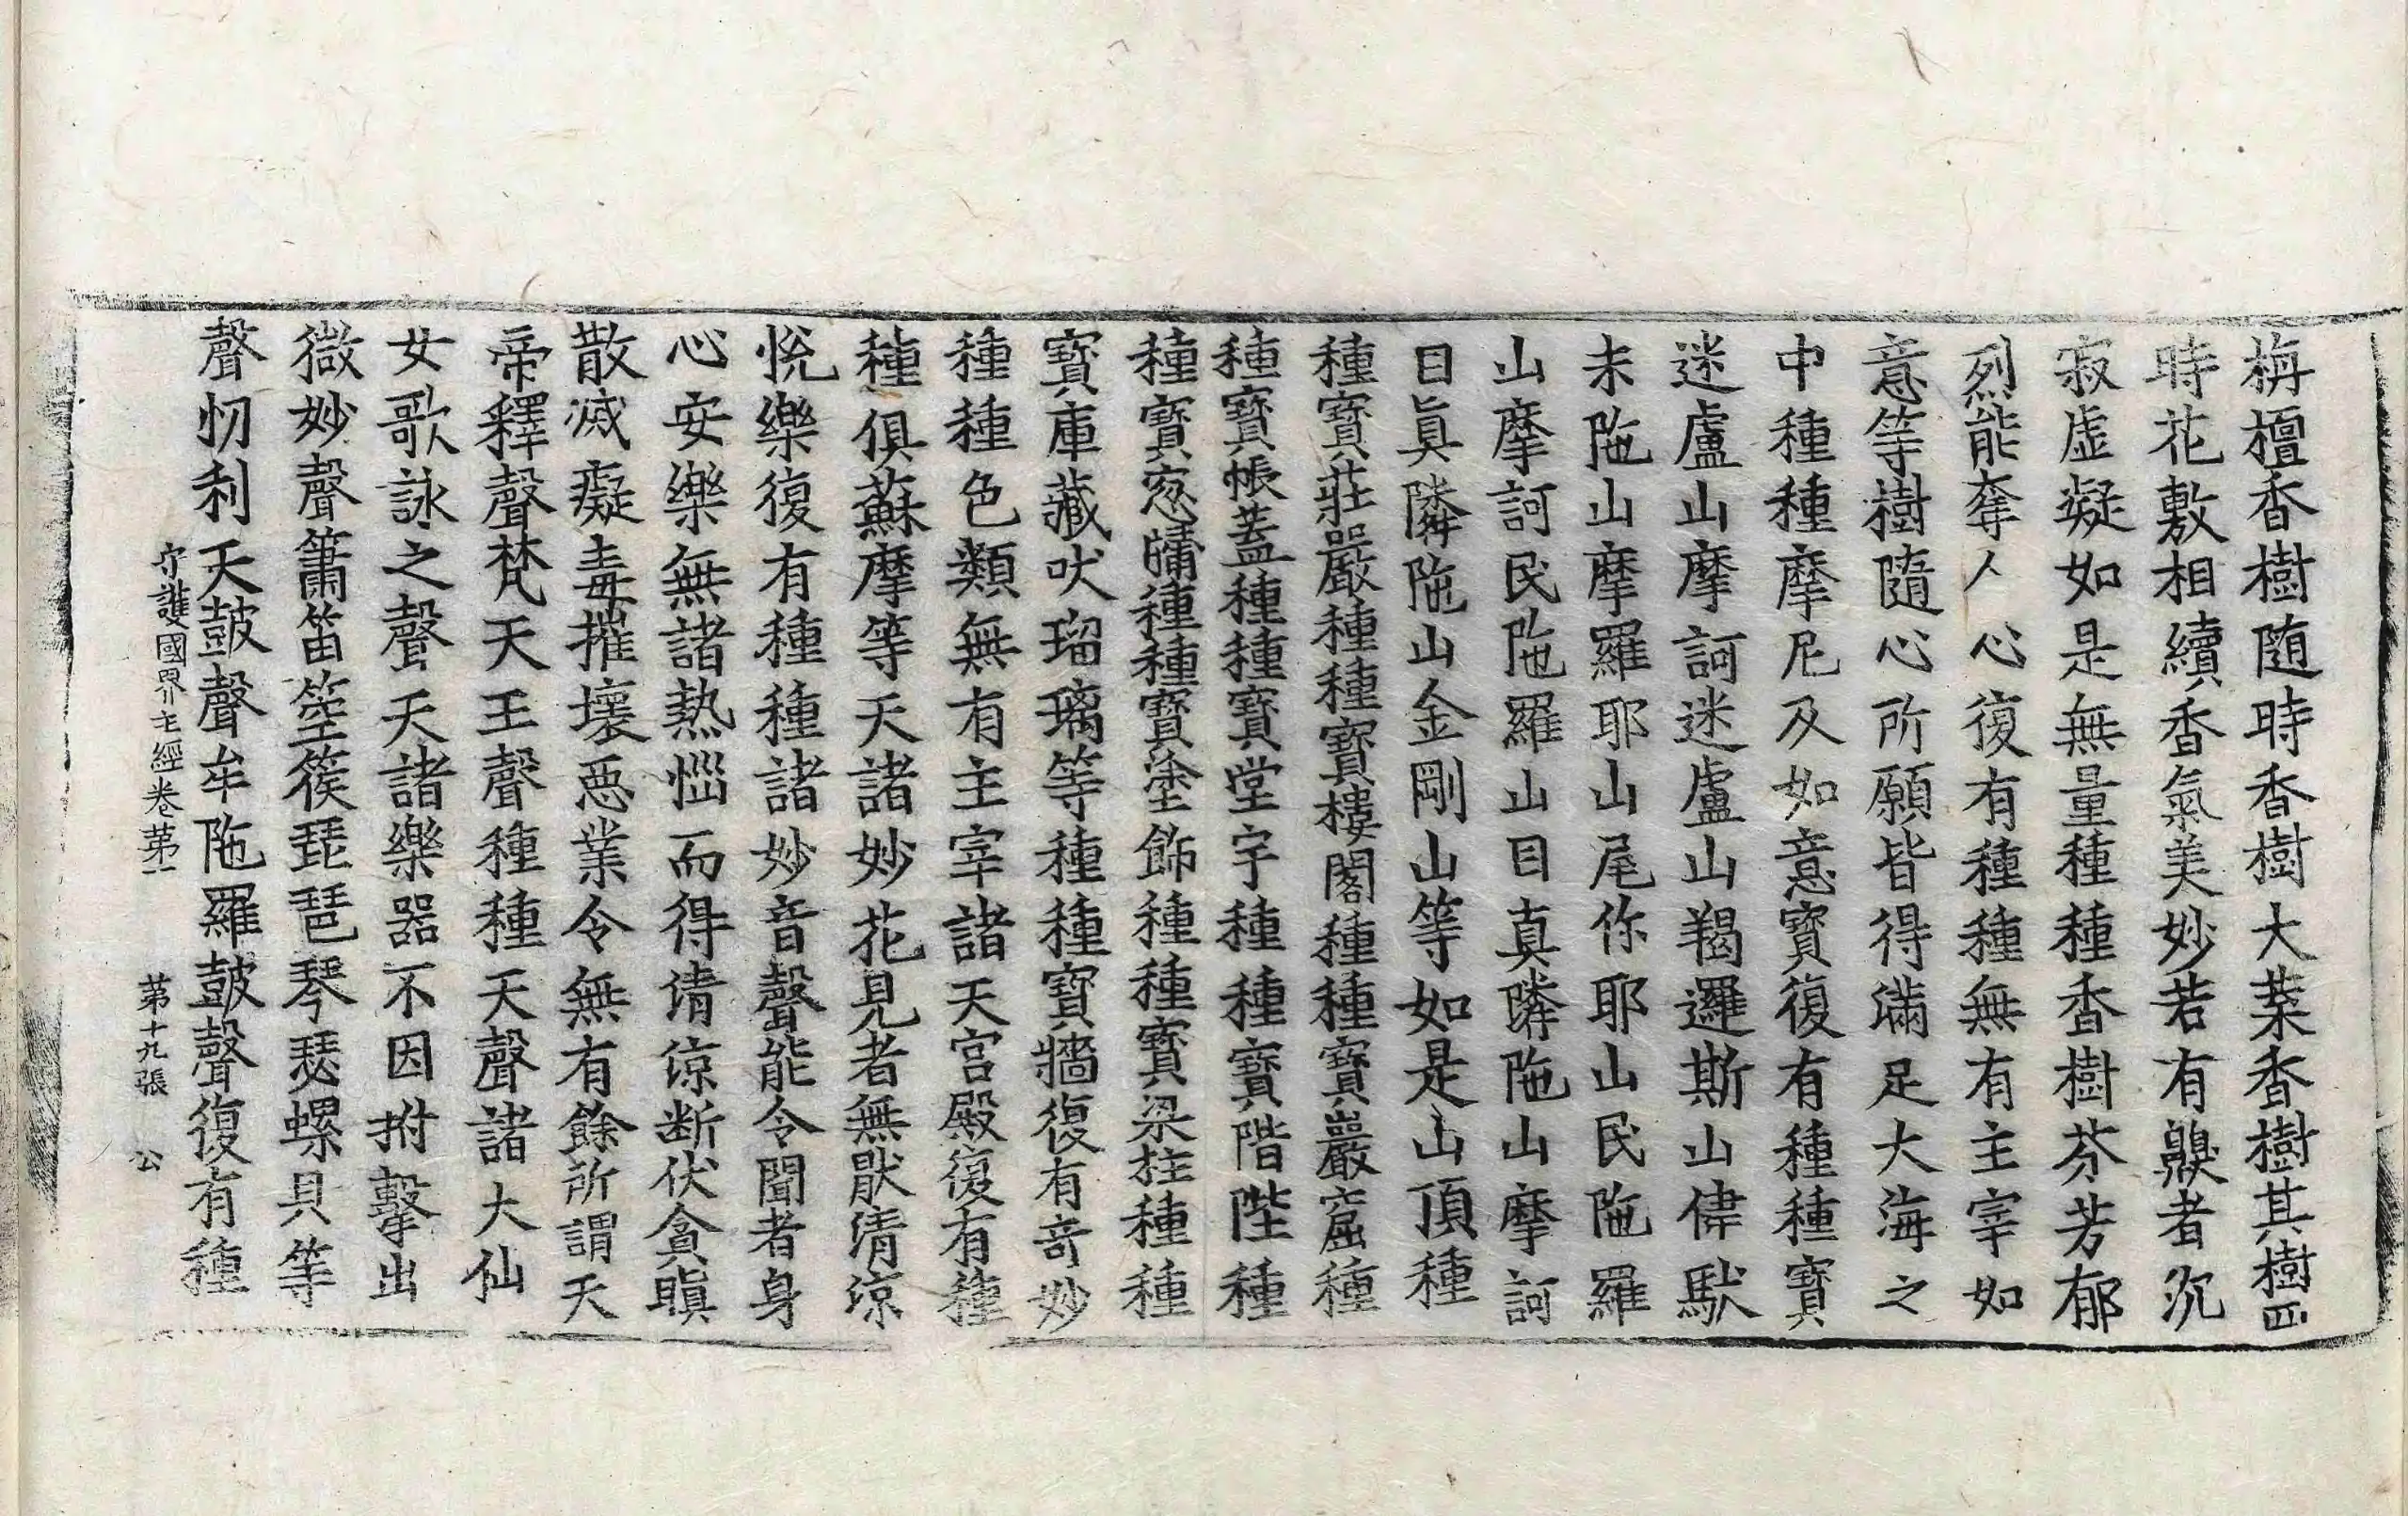 栴檀香樹随時香樹大葉香樹其樹四
時花敷相續香氣美妙若有齅者沉
寂虛凝如是無量種種香樹芬芳郁
烈能奪人心復有種種無有主宰如
意等樹隨心所願皆得滿足大海之
中種種摩尼及如意寶復有種種寶
迷盧山摩訶迷盧山羯邏斯山偉䭾
未陁山摩羅耶山尾你耶山民陁羅
山摩訶民陁羅山目真隣陁山摩訶
目眞隣陁山金剛山等如是山頂種
種寶莊嚴種種寶樓閣種種寶巖窟種
種寶帳蓋種種寶堂宇種種寶階陛種
種寶窓牖種種寶塗飾種種寶梁柱種種
寶庫藏吠瑠璃等種種寶牆復有奇妙
種種色類無有主宰諸天宮殿復有種
種俱蘇摩等天諸妙花見者無猒清涼
悅樂復有種種諸妙音聲能令聞者身
心安樂無諸熱惱而得清涼断伏貪瞋
散滅癡毒摧壞惡業令無有餘所謂天
帝釋聲梵天王聲種種天聲諸大仙
女歌詠之聲天諸樂器不因拊擊出
微妙聲簫笛箜篌琵琶琴瑟螺貝等
聲忉利天鼓聲牟陁羅鼓聲復有種
守護國界主經卷第一 第十九張 公